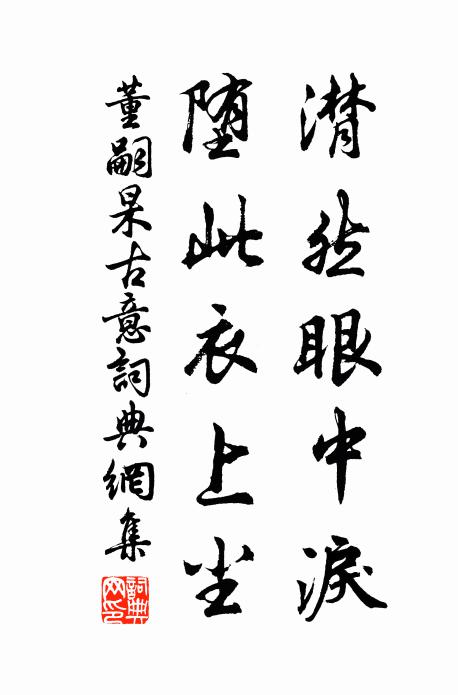 潸然眼中淚
堕此衣上尘
董嗣杲古意詞典網集
詞典网印